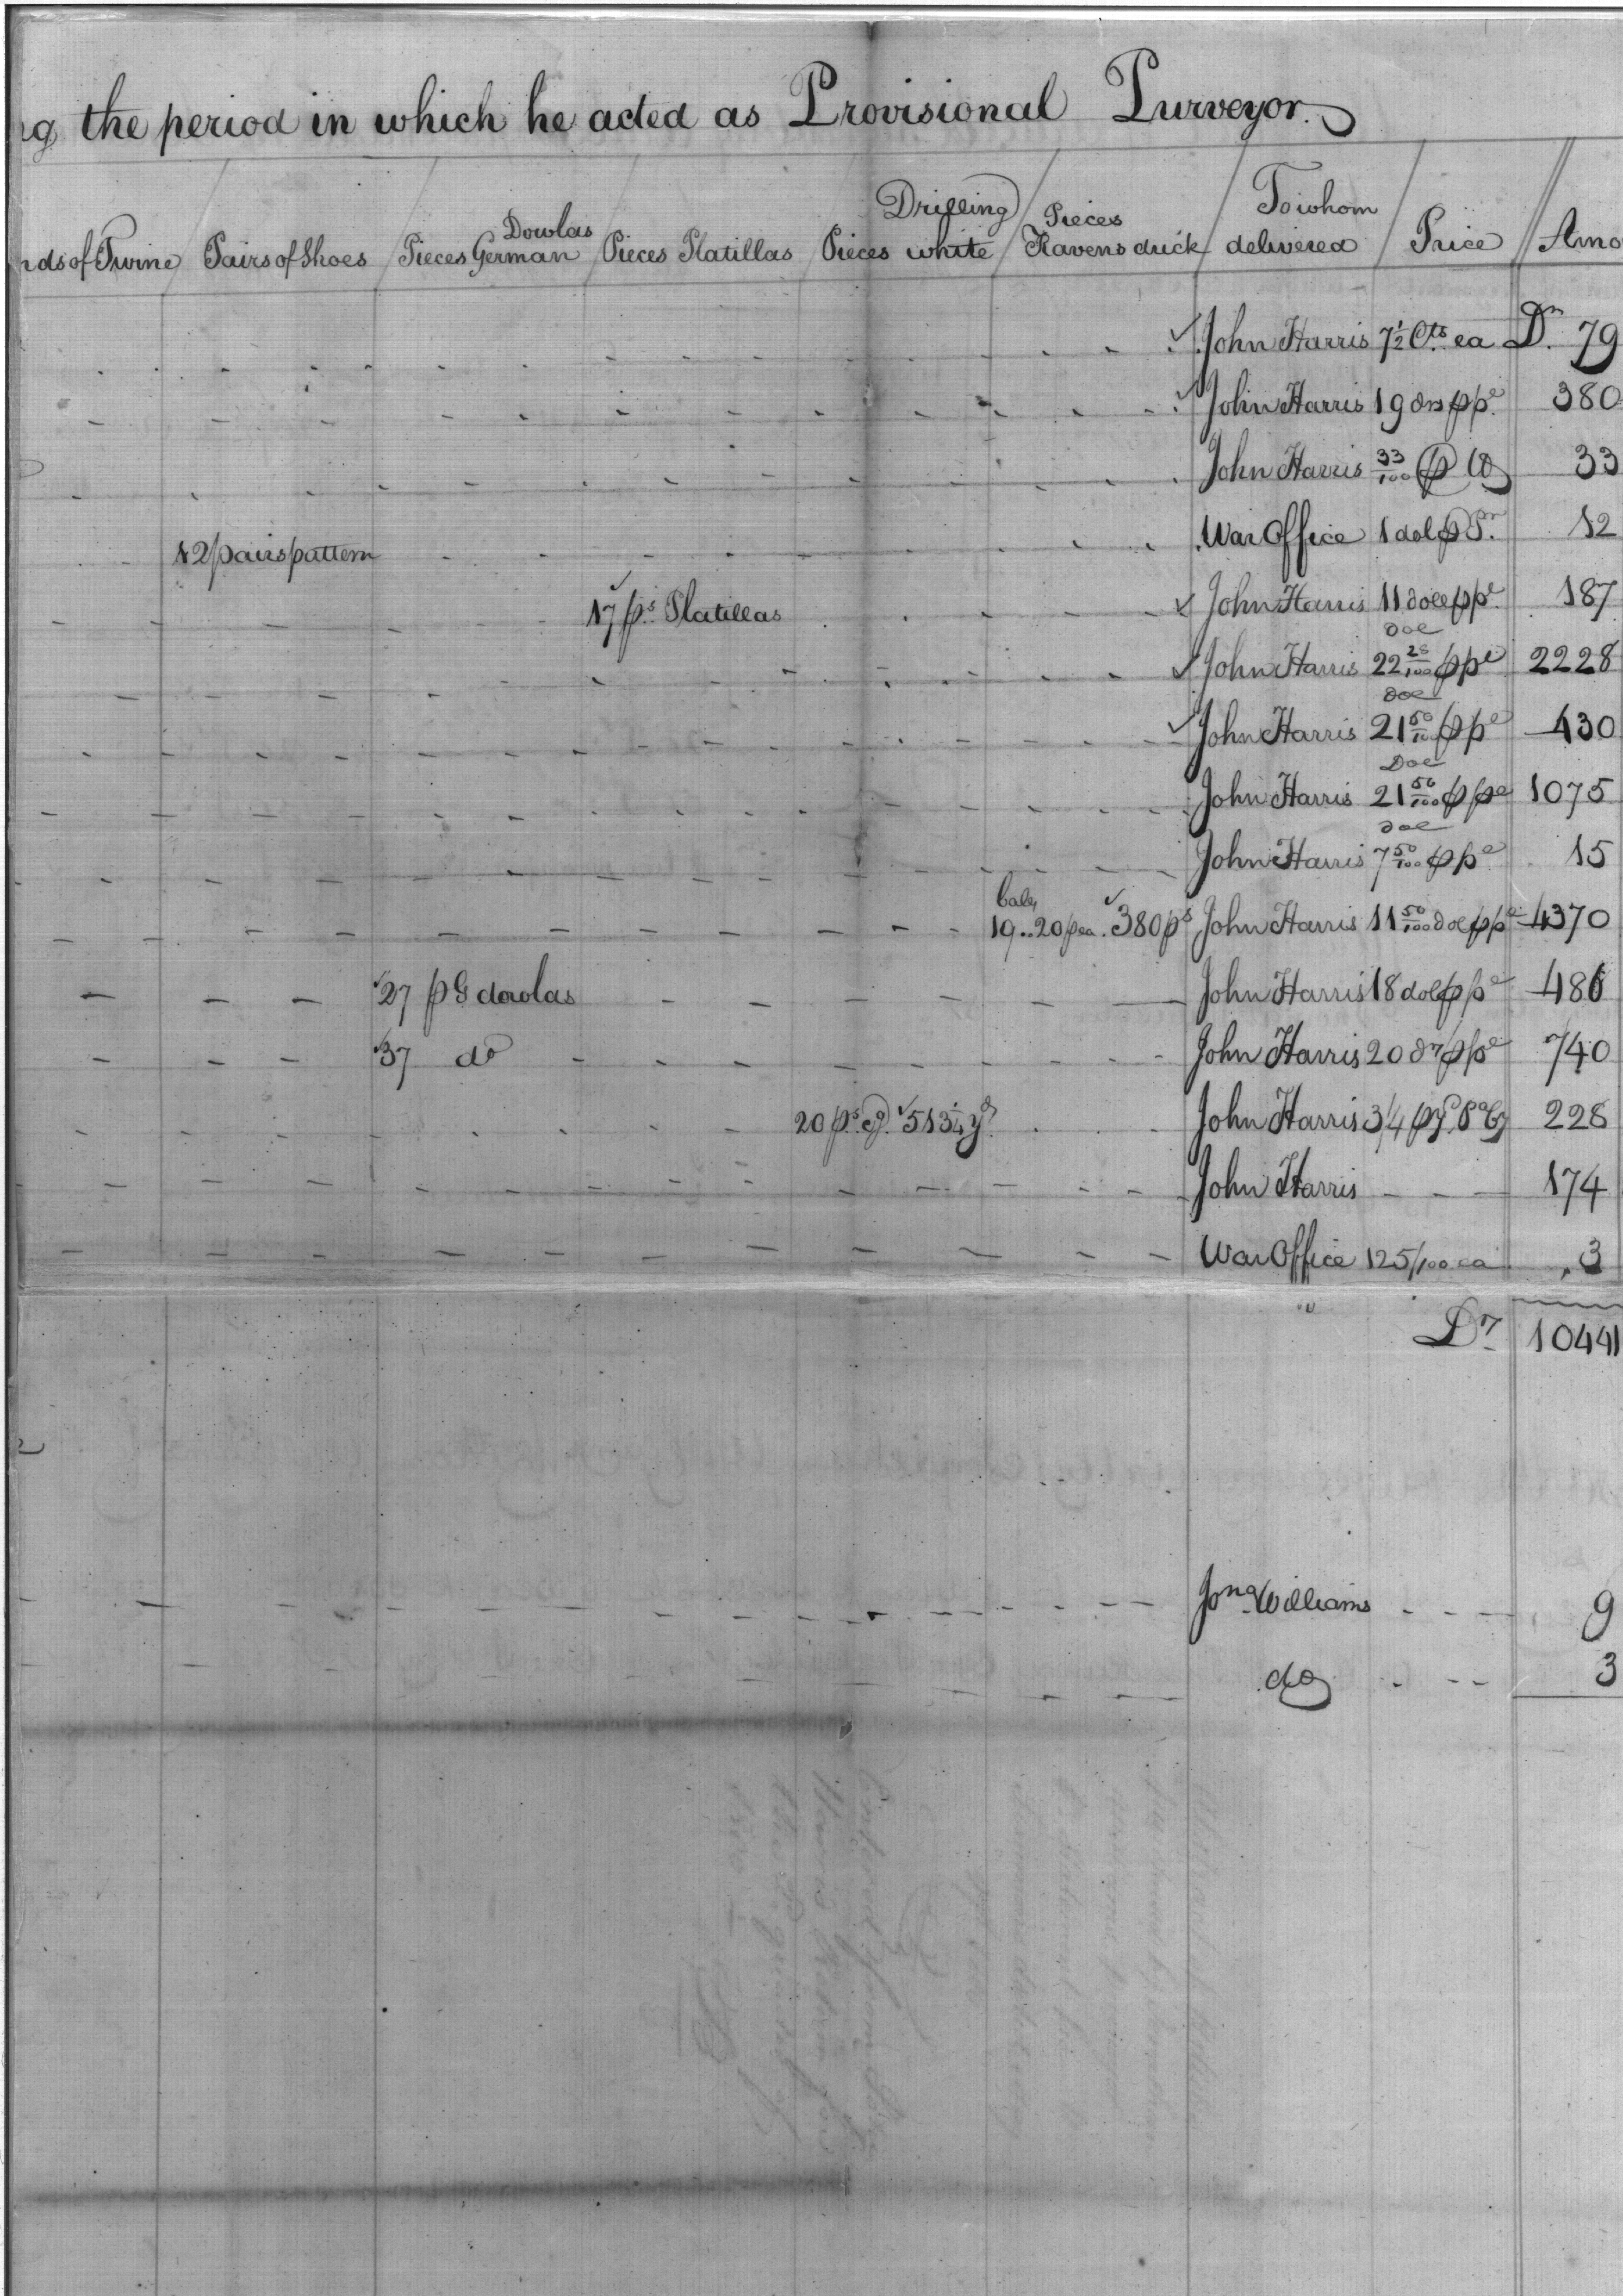 ng the period in which he acted as Provisional Purveyor.
nds of Twine / Pairs of Shoes / Pieces German Dowlas / Pieces Platillas / Pieces Drilling white / Pieces Ravens duck / To whom delivered / Price // Amo
John Harris 7 1/2 Cts ea Drs 79
John Harris 19 drs p pe 380
John Harris 33/100 p lb 33
12 pairs pattern War Office 1 dol p Pr. 12
17 ps Platillas John Harris 11 doll p pe 187
John Harris 22 28/100 dol p pe 2228
John Harris 21 50/100 dol p pe 430
John Harris 21 50/100 Dol p pe 1075
John Harris 7 50/100 dol p pe 15
bales 19..20 p ea. 380 ps John Harris 11 50/100 dol p pe 4370
27 p G dowlas John Harris 18 dol p pe 486
37 do John Harris 20 drs p pe 740
20 ps qg 513 1/4 yd John Harris 3/4 p y 228
John Harris 174
War Office 125/100 ea 3
Drs 10441
Jona Williams 9
do 3